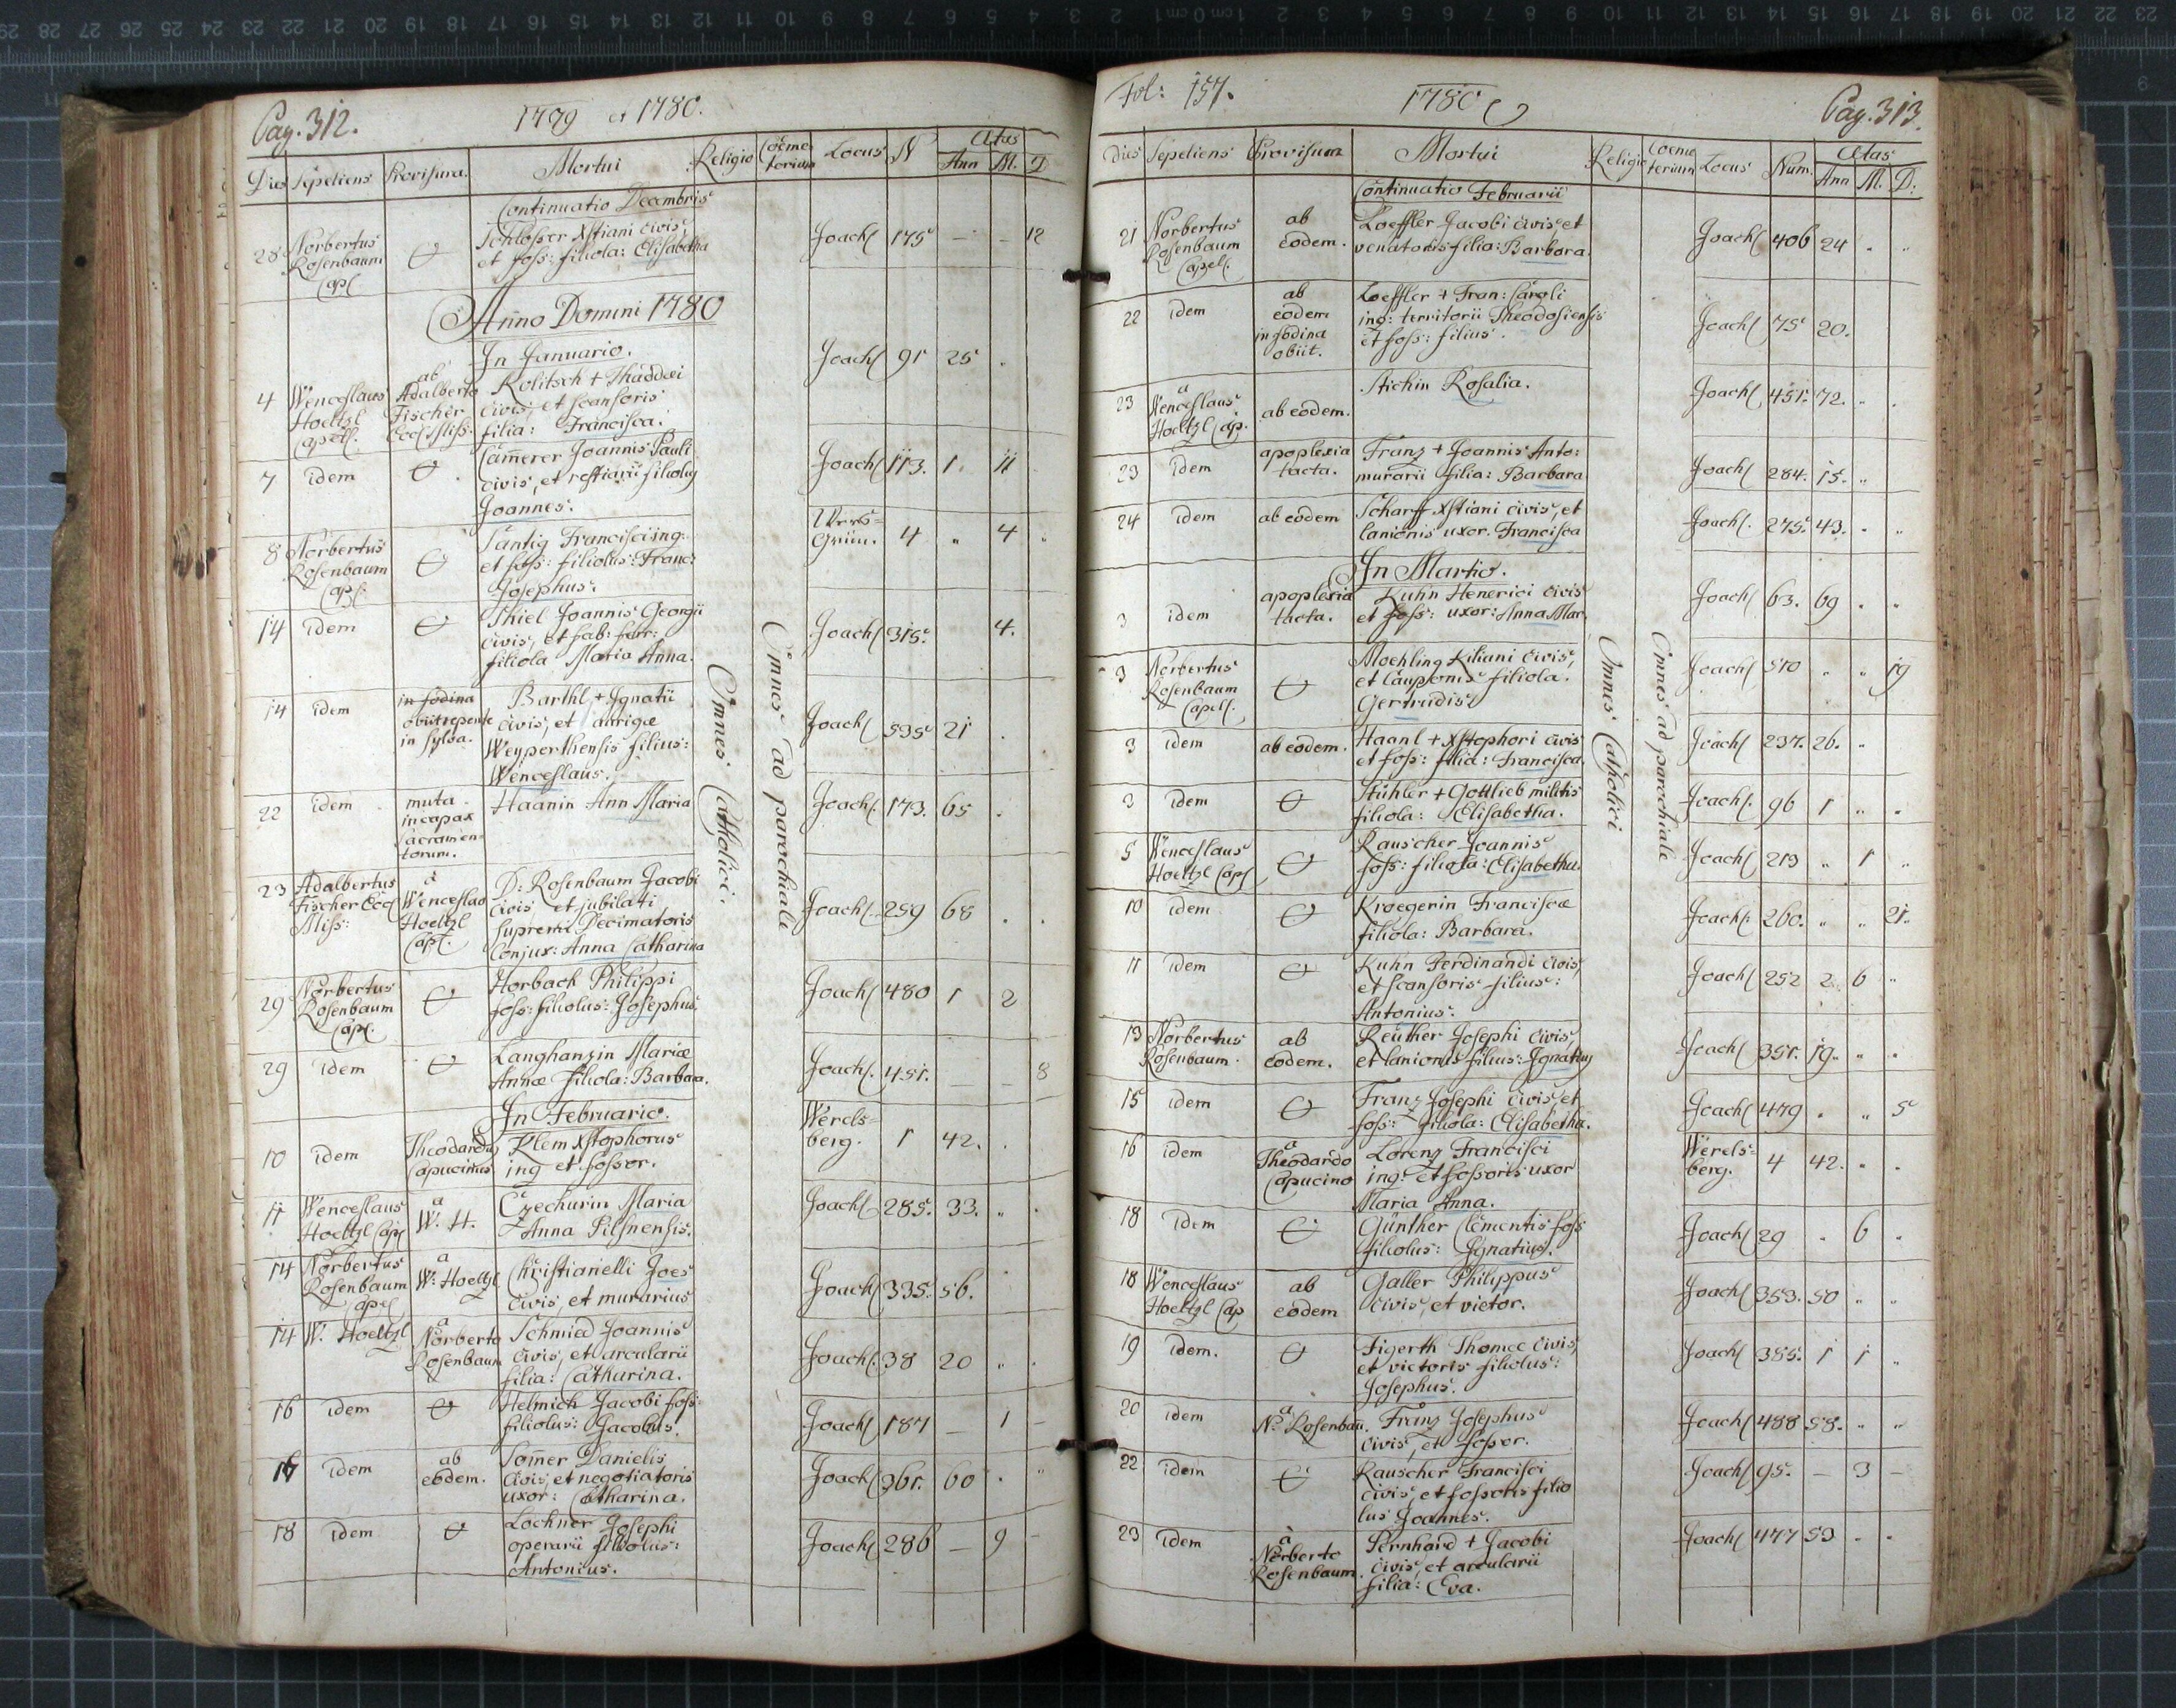 Pag. 312.
1779 et 1780.
Dies Sepeliens Provisura. Mortui Religio Coeme-terium Locus N Ætas Ann M. D
Continuatio Decembris
28 Norbertus Rosenbaum Capl. Schlosser Xstiani civis, et foss: filiola: Elisabetha Joach 175 – – 12
Anno Domini 1780
In Januario.
4 Wenceslaus Hoeltzl Capell. ab Adalberto Fischer Eccl. Miss: Kolitsch + Thaddæi civis, et scansoris filia: Francisca. Joach 91 25 .
7 idem Camerer Joannis Pauli civis, et restiarii filiolus Joannes. Joach 113. 1. 11
8 Norbertus Rosenbaum Capl. Tantig Francisci inq: et foss: filiolus: Franc: Josephus. Grün. 4 " 4 "
14 idem Thiel Joannis Georgii civis, et fab: ferr: filiola Maria Anna. Joach 315. 4.
14 idem in fodina obiit repente in sylva. Barthl + Ignatii civis, et aurigæ Weyperthensis filius: Wenceslaus. Joach 535 21 .
22 idem muta incapax Sacramen-torum. Haanin Ann Maria Joach. 173. 65 .
23 Adalbertus Fischer Eccl Miss: a Wenceslao Hoeltzl Capl. D: Rosenbaum Jacobi civis et jubilati supremi Decimatoris Conjux: Anna Catharina Joach 259 68 . .
29 Norbertus Rosenbaum Capl. Horbach Philippi foss: filiolus: Josephus. Joach 480 1 2
29 idem Langhanzin Mariæ Annæ filiola: Barbara. Joach. 451. – 8
In Februario.
10 idem Theodardus Capucinus Klem Xstophorus inq et fossor. Werls-berg. 1 42. .
11 Wenceslaus Hoeltzl Capl a W. H. Czechurin Maria Anna Pilsnensis. Joach 285. 33. " .
14 Norbertus Rosenbaum Capel a W. Hoeltzl Christianelli Joes civis, et murarius Joach 335. 56.
14 W. Hoeltzl a Norberto Rosenbaum Schmied Joannis civis, et arcularii filia: Catharina. Joach. 38 20 " .
16 idem Helmich Jacobi foss: filiolus: Jacobus. Joach 187 – 1 –
16 idem ab eodem. Somer Danielis civis, et negotiatoris uxor: Catharina. Joach 361. 60 . "
18 idem Lochner Josephi operarii filiolus: Antonius. Joach 286 – 9 –
Omnes Catholici.
Omnes ad parochiale
Fol: 157.
1780
Pag. 313.
Dies Sepeliens Provisura Mortui Religio Coeme terium Locus Num. Ætas Ann M. D:
Continuatio Februarii
21 Norbertus Rosenbaum Capel. ab eodem. Loeffler Jacobi civis, et venatoris filia: Barbara. Joach 406 24 . "
22 idem ab eodem in fodina obiit. Loeffler + Fran: Caroli inq: territorii Theodosiensis et foss: filius. Joach 75 20.
23 a Wenceslaus Hoeltzl Cap. ab eodem. Stichin Rosalia. Joach 451. 72. " .
23 idem apoplexia tacta. Franz + Joannis Anto: murarii filia: Barbara Joach 284. 15. "
24 idem ab eodem Scharff Xstiani civis, et lanionis uxor. Francisca Joach. 275. 43. . "
In Martio.
3 idem apoplexia tacta. Kuhn Henerici civis et foss: uxor: Anna Mar. Joach 63. 69 . "
3 Norbertus Rosenbaum Capell. Moehling Kiliani civis, et cauponis filiola. Gertrudis. Joach 510 " " 19
3 idem ab eodem. Haanl + Xstophori civis et foss: filia: Francisca. Joach 237. 26. "
3 idem Stühler + Gottlieb militis filiola: Elisabetha. Joach. 96 1 " .
5 Wenceslaus Hoeltzl Capl Rauscher Joannis foss: filiola: Elisabetha. Joach 213 " 1 "
10 idem Kroegerin Franciscæ filiola: Barbara. Joach. 260. " " 21.
11 idem Kuhn Ferdinandi civis, et scansoris filius: Antonius. Joach 252 2. 6 "
13 Norbertus Rosenbaum. ab eodem. Reuther Josephi civis, et lanionis filius: Ignatius Joach 351. 19. " .
15 idem Franz Josephi civis, et foss: filiola: Elisabetha. Joach 479 . " 5
16 idem a Theodardo Capucino Lorenz Francisci inq: et fossoris uxor Maria Anna. Werls-berg. 4 42. " .
18 idem Günther Clementis foss filiolus: Ignatius. Joach 29 . 6 .
18 Wenceslaus Hoeltzl Cap ab eodem Galler Philippus civis, et vietor. Joach 353. 50 " "
19 idem. Figerth Thomæ civis, et victoris filiolus: Josephus. Joach 385. 1 1 "
20 idem a N. Rosenbau. Franz Josephus civis, et fossor. Joach 488 58. " "
22 idem Rauscher Francisci civis, et fossoris filio lus Joannes. Joach 95. – 3 –
23 idem à Norberto Rosenbaum. Pernhard + Jacobi civis, et arcularii filia: Eva. Joach 477 53 . .
Omnes Catholici
Omnes ad parochiale